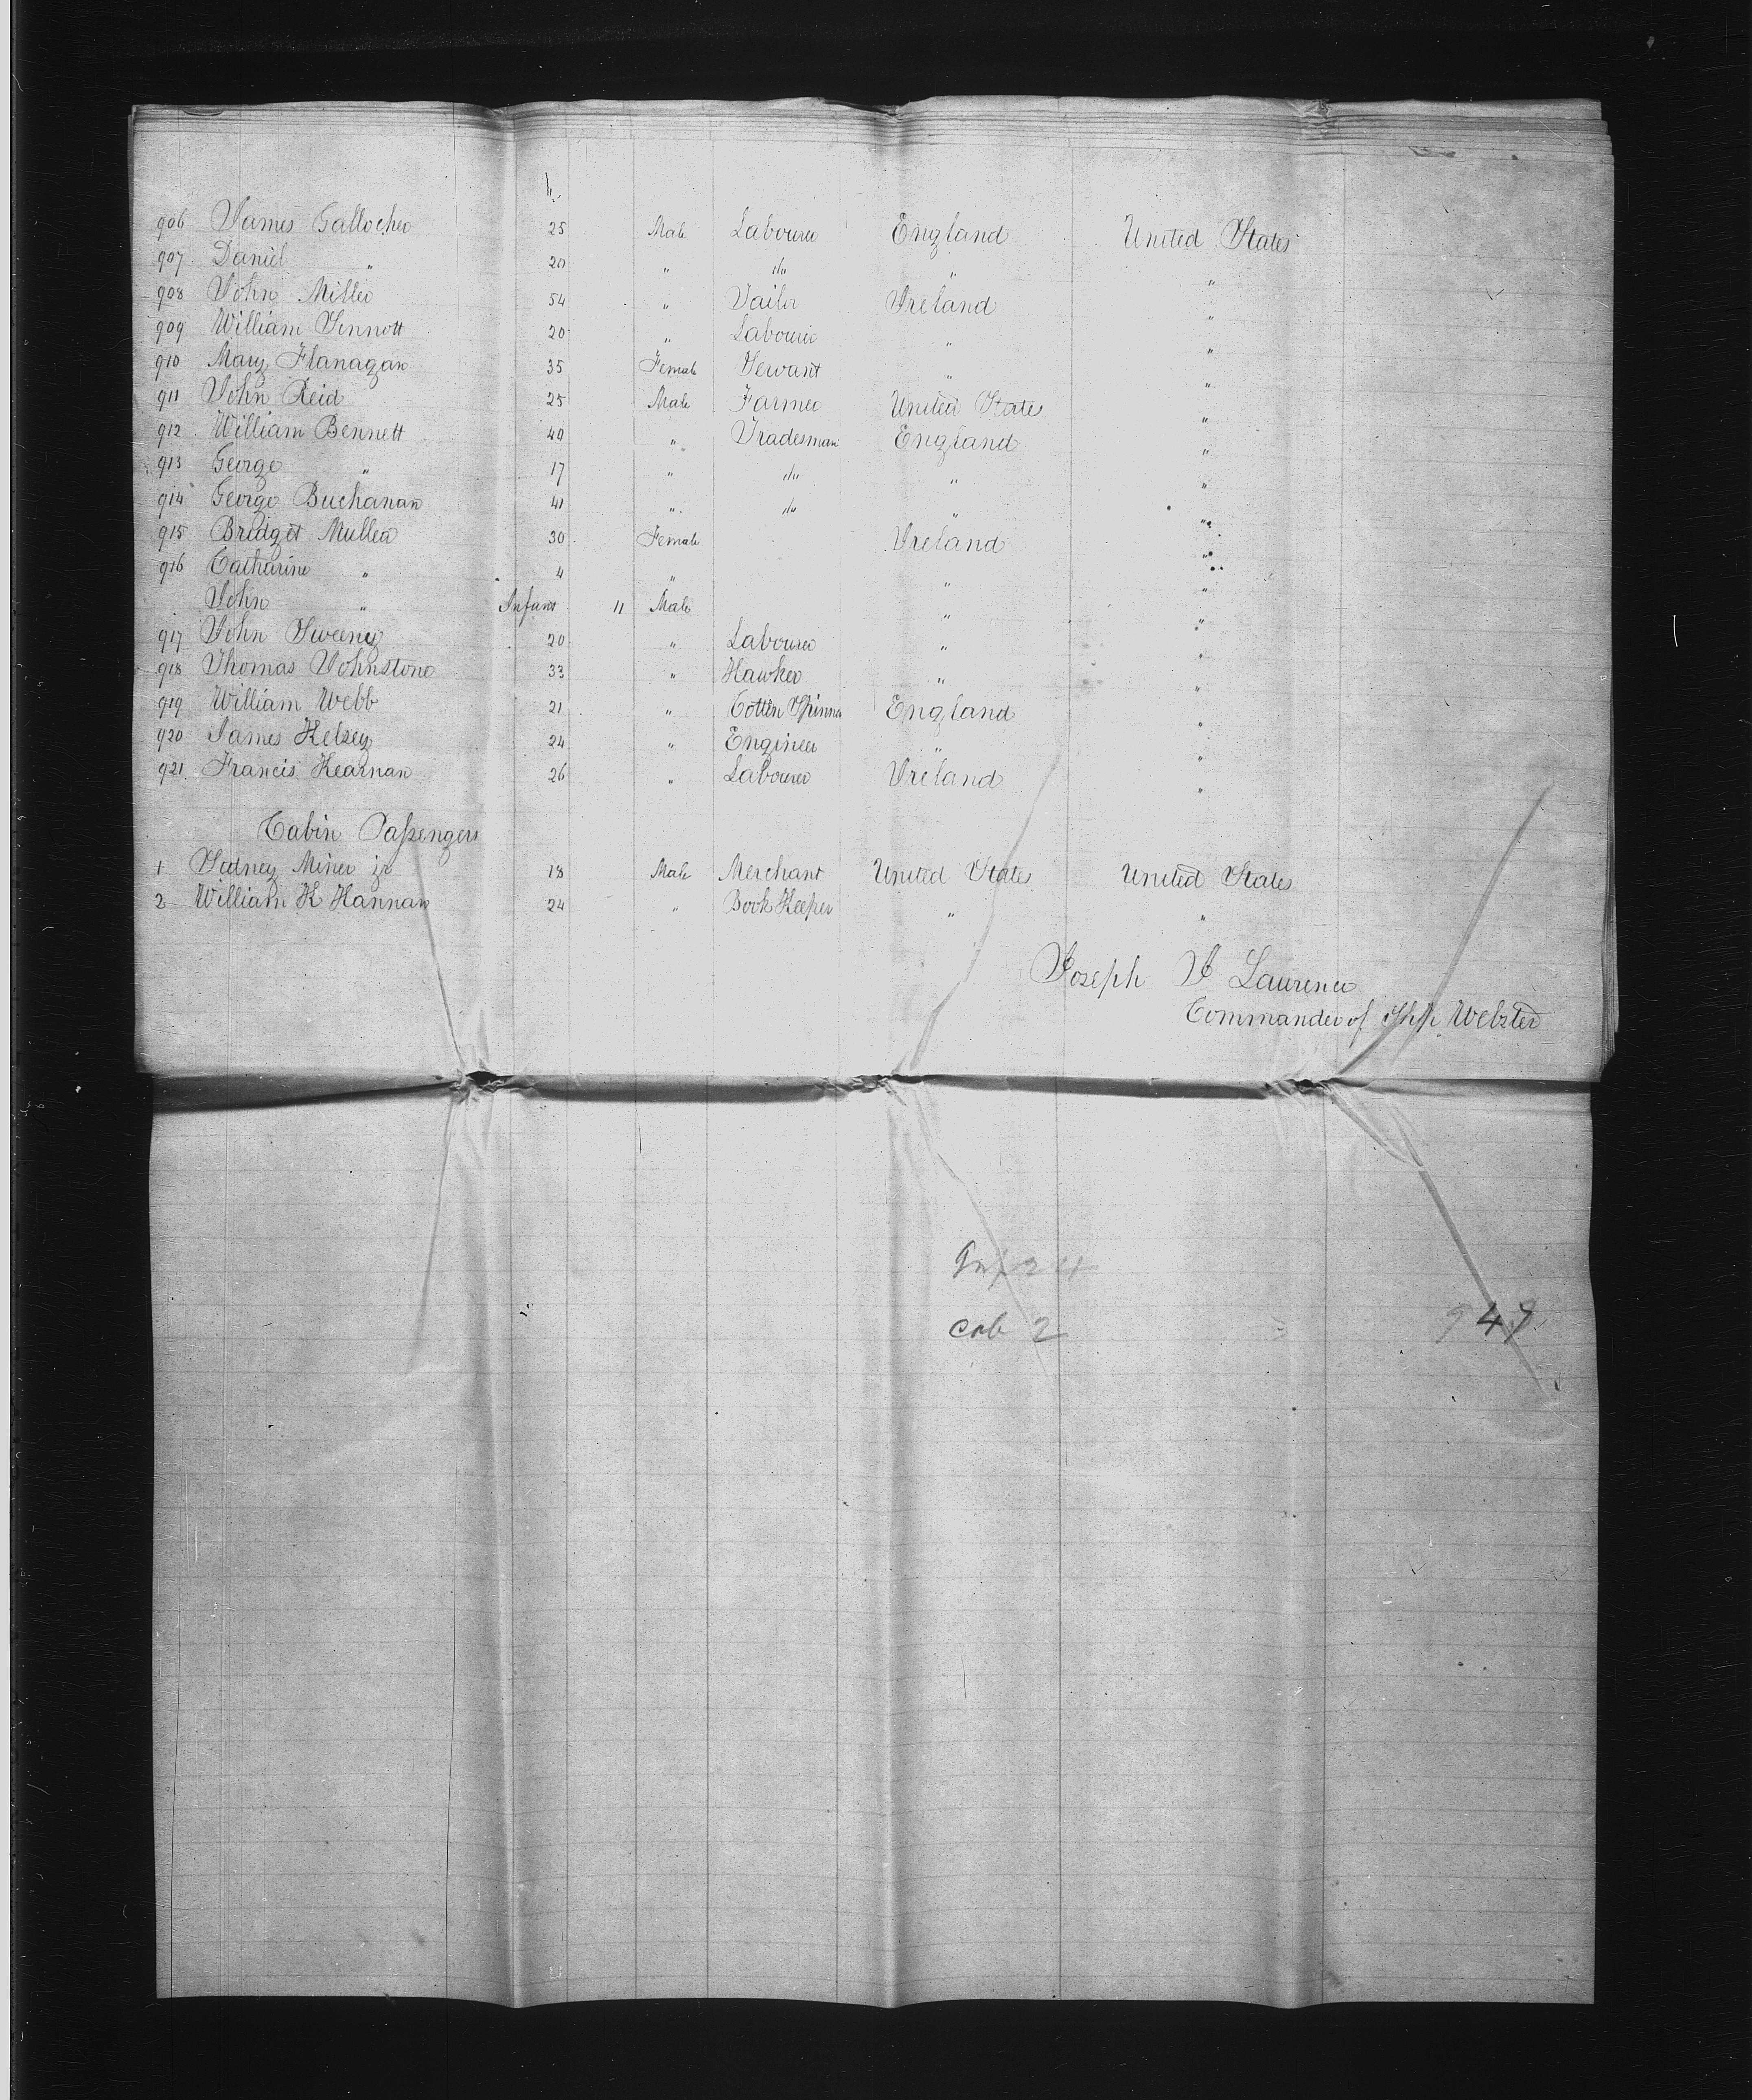 906 James Gallocher 25 Male Labourer England United States
907 Daniel " 20 " do " "
908 John Miller 54 " Tailor Ireland "
909 William Sinnott 20 " Labourer " "
910 Mary Flanagan 35 Female Servant " "
911 John Reid 25 Male Farmer United States "
912 William Bennett 40 " Tradesman England "
913 George " 17 " do " "
914 George Buchanan 41 " do " "
915 Bridget Mullen 30 Female Ireland "
916 Catharine " 4 " " "
John " Infant 11 Male " "
917 John Sweeny 20 " Labourer " "
918 Thomas Johnstone 33 " Hawker " "
919 William Webb 21 " Cotten Spinner England "
920 James Kelsey 24 " Engineer " "
921 Francis Kearnan 26 " Labourer Ireland "
Cabin Passengers
1 Sidney Miner jr 18 Male Merchant United States United States
2 William K Hannan 24 " Book Keeper " "
Joseph J Lawrence
Commander of Ship Webster
Inf 24
Cab 2
947